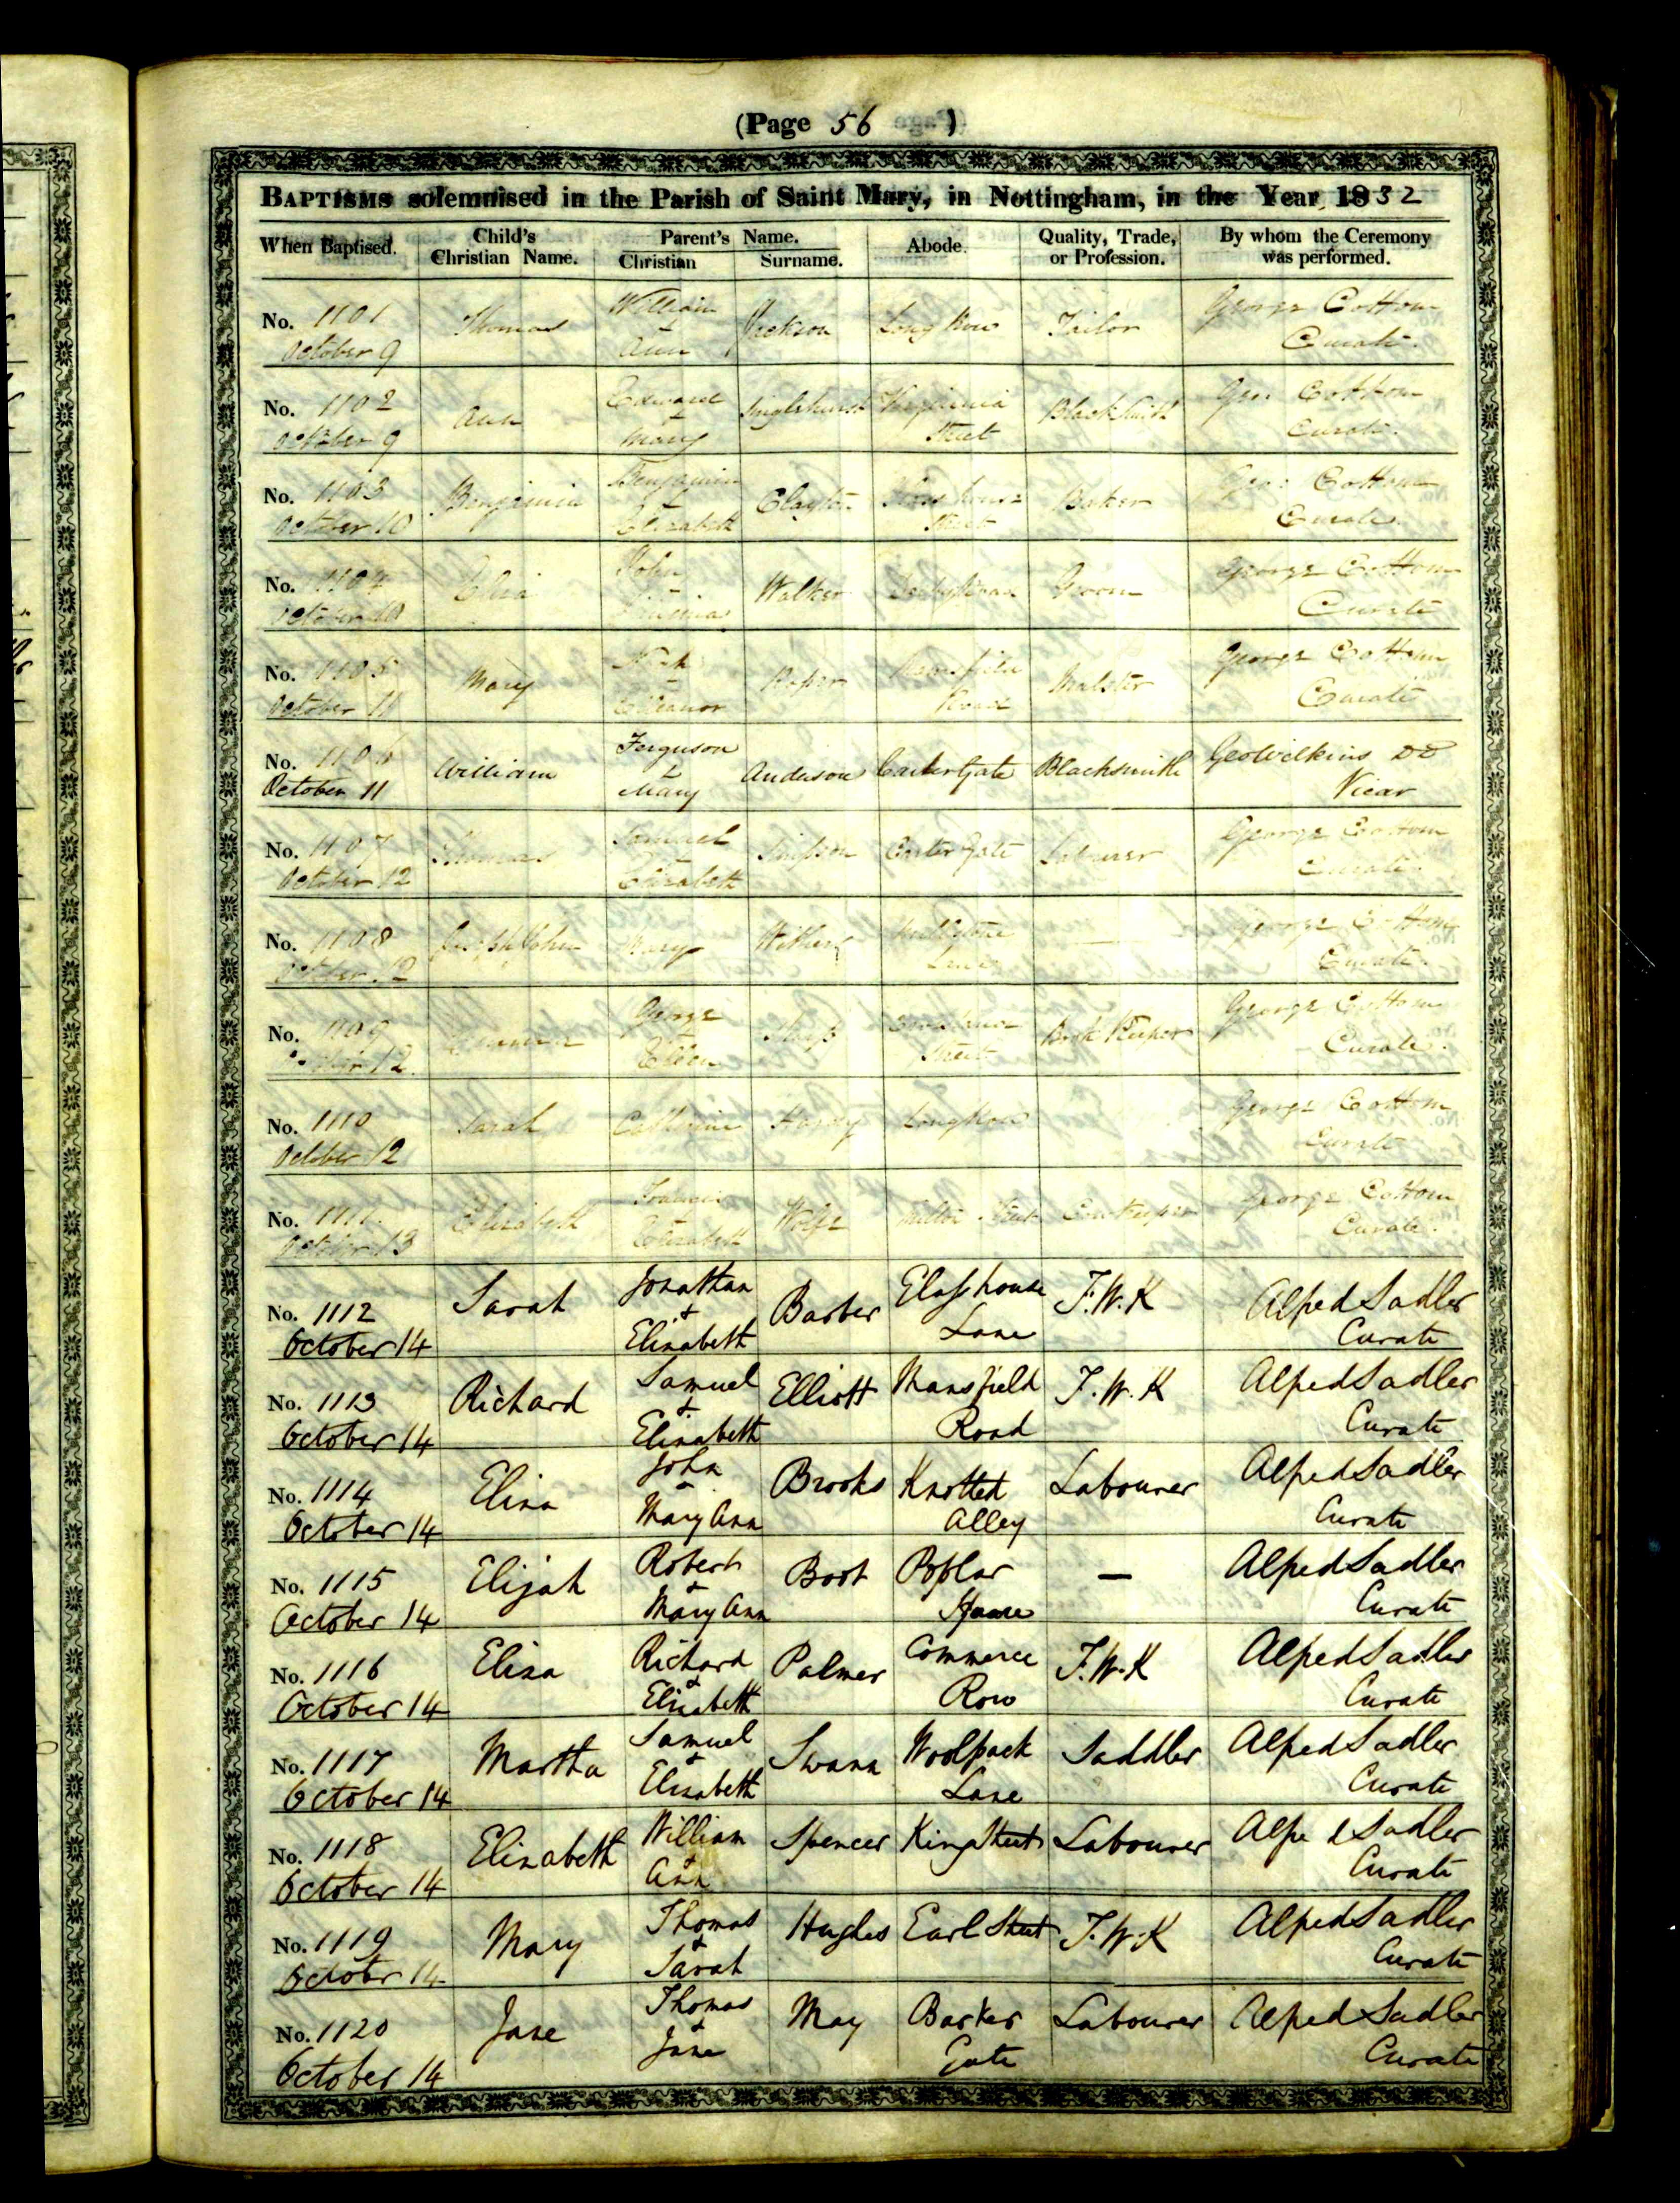 (Page 56 )
BAPTISMS solemnised in the Parish of Saint Mary, in Nottingham, in the Year 1832
When Baptised. Child's Christian Name. Parent's Name. Christian Surname. Abode. Quality, Trade, or Profession. By whom the Ceremony was performed.
No. 1101 Thomas William & Ann Jackson Long Row Tailor George Cottom
October 9 Curate.
No. 1102 Ann Edward & Mary Virginia Street Blacksmith Geo: Cottom
October 9 Curate.
No. 1103 Benjamin Benjamin & Elizabeth Clayton Street Baker Geo: Cottom
October 10 Curate.
No. 1104 John & Walker Groom George Cottom
October 10 Curate
No. 1105 Mary & Eleanor Roper Mansfield Road Malster George Cottom
October 11 Curate
No. 1106 William Ferguson & Mary Anderson Carter Gate Blacksmith Geo Wilkins DD
October 11 Vicar
No. 1107 Thomas Samuel & Elizabeth Simpson Carter Gate Labourer George Cottom
October 12 Curate.
No. 1108 Joseph John Mary Millstone Lane — George Cottom
October 12 Curate.
No. 1109 George & Ellen Street Book Keeper George Cottom
October 12. Curate.
No. 1110 Sarah Catherine Hardy Long Row George Cottom
October 12 Curate
No. 1111. Elizabeth Francis & Elizabeth Wolfe Milton Street Cowkeeper George Cottom
October 13 Curate.
No. 1112 Sarah Jonathan & Elizabeth Barber Glasshouse Lane F.W.K Alfred Sadler
October 14 Curate
No. 1113 Richard Samuel & Elizabeth Elliott Mansfield Road F.W.K Alfred Sadler
October 14 Curate
No. 1114 Eliza John & Mary Ann Brooks Knotted Alley Labourer Alfred Sadler
October 14 Curate
No. 1115 Elijah Robert & Mary Ann Boot Poplar Square — Alfred Sadler
October 14 Curate
No. 1116 Eliza Richard & Elizabeth Palmer Commerce Row F.W.K Alfred Sadler
October 14 Curate
No. 1117 Martha Samuel & Elizabeth Swann Woolpack Lane Saddler Alfred Sadler
October 14 Curate
No. 1118 Elizabeth William & Ann Spencer King Street Labourer Alfred Sadler
October 14 Curate
No. 1119 Mary Thomas & Sarah Hughes Earl Street F.W.K Alfred Sadler
October 14 Curate
No. 1120 Jane Thomas & Jane May Barker Gate Labourer Alfred Sadler
October 14 Curate